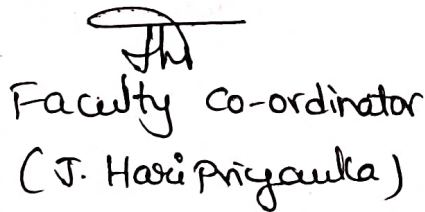 Faculty Co-ordinator
(J. Hari Priyanka)